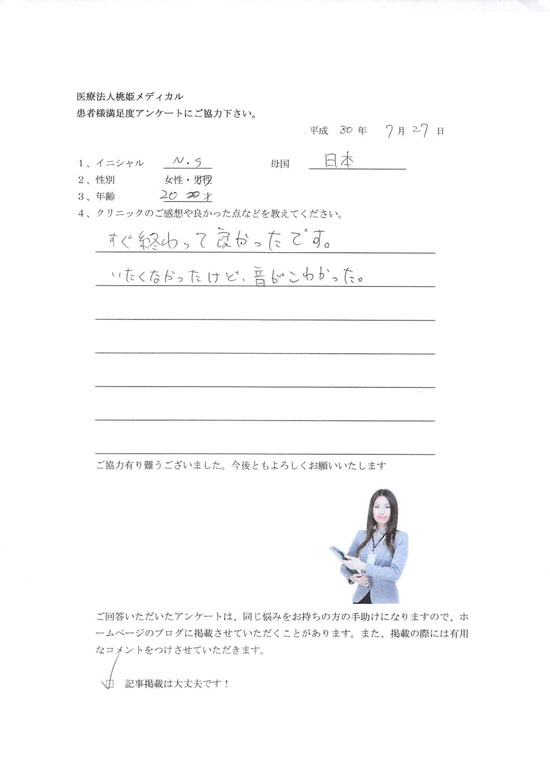 医療法人桃姫メディカル
患者様満足度アンケートにご協力下さい。
平成 30 年 7 月 27 日
1、イニシャル N.S 母国 日本
2、性別 女性・男性
3、年齢 20 才
4、クリニックのご感想や良かった点などを教えてください。
すぐ終わって良かったです。
いたくなかったけど、音がこわかった。
ご協力有り難うございました。今後ともよろしくお願いいたします
ご回答いただいたアンケートは、同じ悩みをお持ちの方の手助けになりますので、ホ
ームページのブログに掲載させていただくことがあります。また、掲載の際には有用
なコメントをつけさせていただきます。
記事掲載は大丈夫です！